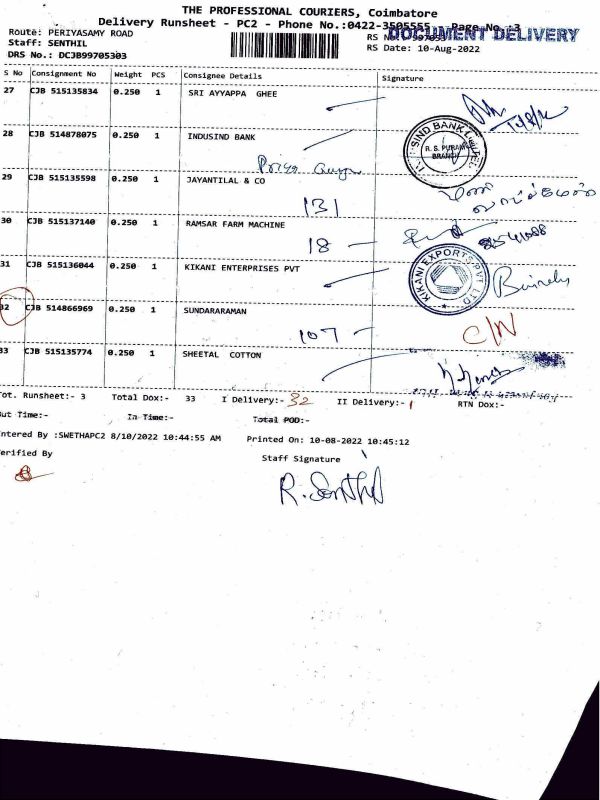 THE PROFESSIONAL COURIERS, Coimbatore
Delivery Runsheet - PC2 - Phone No.:0422-3505555 Page No. 3
DOCUMENT DELIVERY
Route: PERIYASAMY ROAD
Staff: SENTHIL
RS Date: 10-Aug-2022
DRS No.: DCJB99705303
S No Consignment No Weight PCS Consignee Details Signature
27 CJB 515135834 0.250 1 SRI AYYAPPA GHEE
28 CJB 514878075 0.250 1 INDUSIND BANK
SIND BANK LIMITED
R. S. PURAM BRANCH
Priya
29 CJB 515135598 0.250 1 JAYANTILAL & CO
131
30 CJB 515137140 0.250 1 RAMSAR FARM MACHINE
18 -
31 CJB 515136044 0.250 1 KIKANI ENTERPRISES PVT
KIKANI EXPORTS PVT LTD
32 CJB 514866969 0.250 1 SUNDARARAMAN
107 - C/N
33 CJB 515135774 0.250 1 SHEETAL COTTON
Tot. Runsheet:- 3 Total Dox:- 33 I Delivery:- 32 II Delivery:- 1 RTN Dox:-
Out Time:- In Time:- Total POD:-
Entered By :SWETHAPC2 8/10/2022 10:44:55 AM Printed On: 10-08-2022 10:45:12
Verified By Staff Signature
R. Senthil